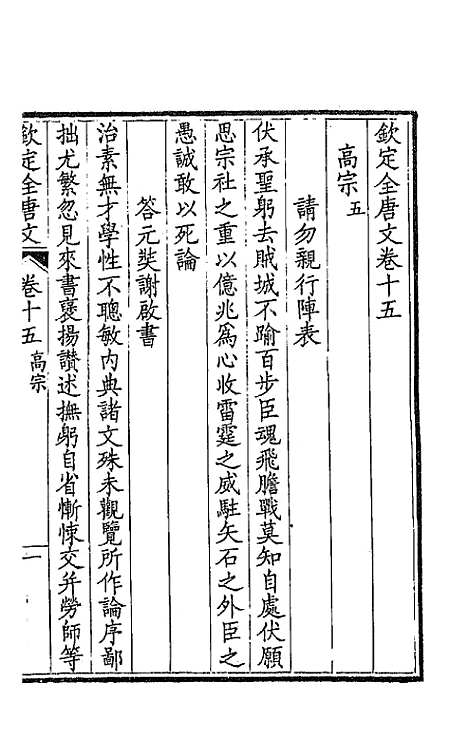 欽定全唐文卷十五
高宗五
請勿親行陣表
伏承聖躬去賊城不踰百步臣魂飛膽戰莫知自處伏願
思宗社之重以億兆爲心收雷霆之威駐矢石之外臣之
愚誠敢以死論
答元奘謝啟書
治素無才學性不聰敏內典諸文殊未觀覽所作論序鄙
拙尤繁忽見來書褒揚讚述撫躬自省慚悚交并勞師等
欽定全唐文 卷十五 高宗 一